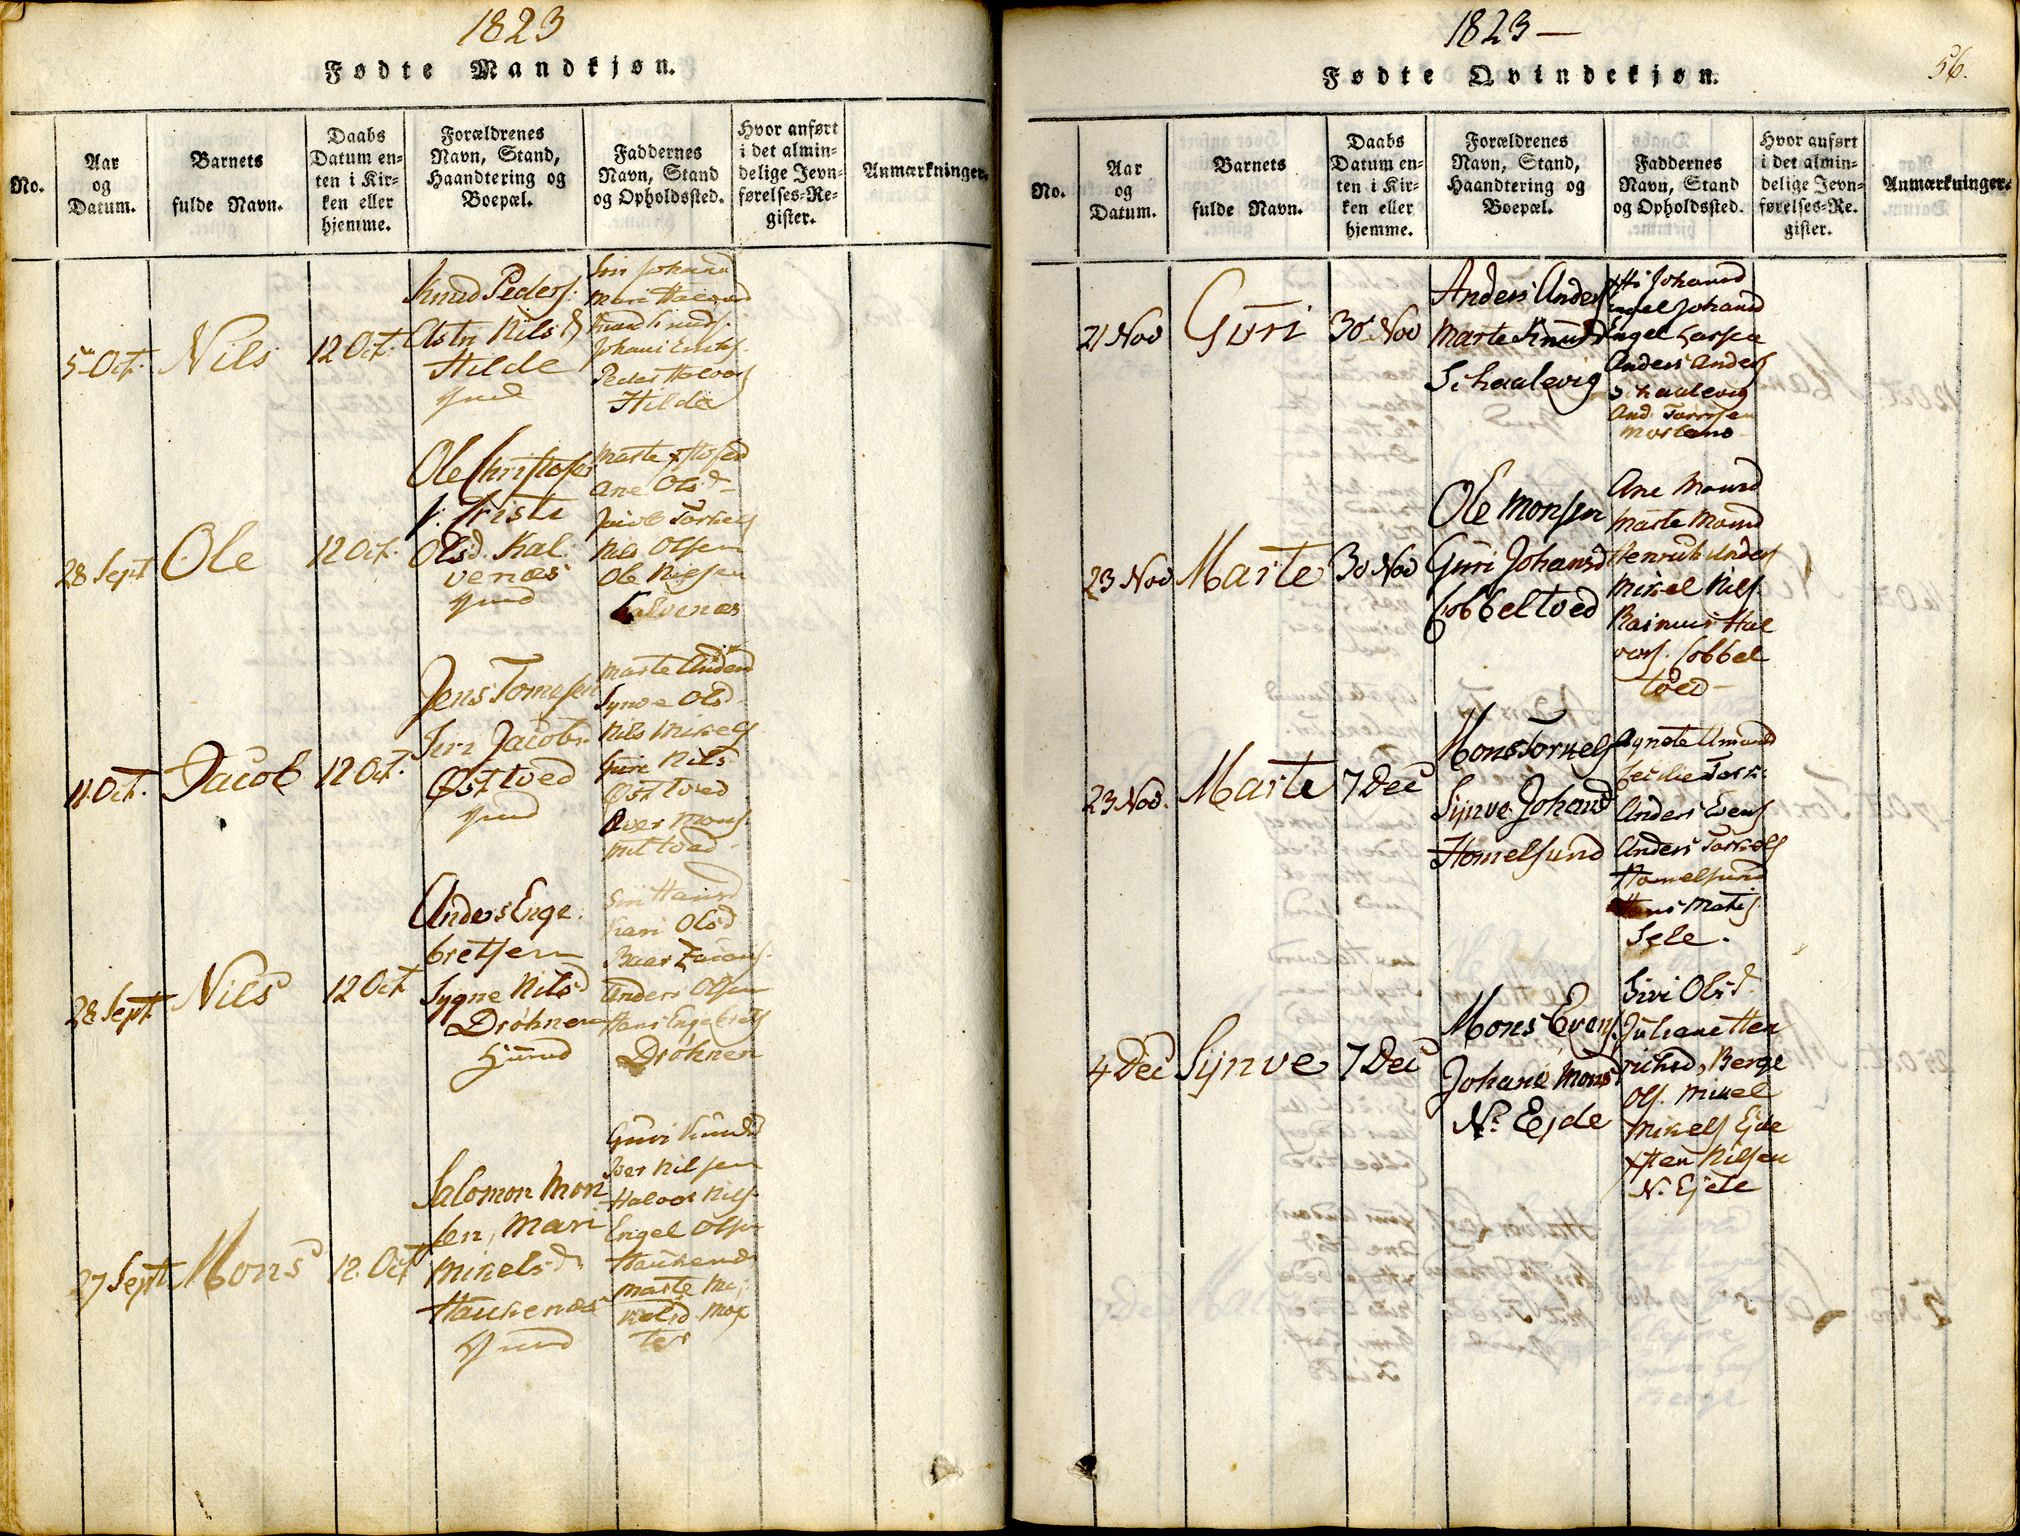 1823
Fødte Mandkjøn.
No.
Aar
og
Datum.
Barnets
fulde Navn.
Daabs
Datum en-
ten i Kir-
ken eller
hjemme.
Forældrenes
Navn, Stand,
Haandtering og
Boepæl.
Faddernes
Navn, Stand
og Opholdssted.
Hvor anført
i det almin-
delige Jevn-
førelses-Re-
gister.
Anmærkninger.
5 Oct.
Nils
12 Oct.
Knud Peders:
Astri Nilsd
Hilde
Siri Johansd
Mari
Knud Knuds.
Johan
Peder Halvors
Hilde
28 Sept
Ole
12 Oct.
Ole Christofer
Olsd. Kal.
venæs
Marte
Ane Olsd
Jacob Torkels
Nils Olsen
Ole Nilsen
Kalvenæs
11. Oct.
Jacob
12 Oct.
Jens Tomesen
Siri Jacobs.
Østtved
Marte Andersd
Synve Olsd
Nils Mikels
Guri Nilsd
Østtved
Iver Mons.
Mittved
28 Sept.
Nils
12 Oct.
Anders Enge.
bretsen
Sygne Nilsd
Drøhnen
Siri Hansd
Kari Olsd
Baar
Anders Olsen
Hans Engebrets
Drøhnen
27 Sept.
Mons
12. Oct
Salomon Mon
sen, Mari
Mikelsd
Haukenæs
Guri Knudsd
Iver Nilsen
Halvor Nils.
Engel Olsen
Haukenæs
Marte Mi,
kelsd. Mox
ter
1823 —
56.
Fødte Qvindekjøn.
No.
Aar
og
Datum.
Barnets
fulde Navn.
Daabs
Datum en-
ten i Kir-
ken eller
hjemme.
Forældrenes
Navn, Stand,
Haandtering og
Boepæl.
Faddernes
Navn, Stand
og Opholdssted.
Hvor anført
i det almin-
delige Jevn-
førelses-Re-
gister.
Anmærkninger.
21 Nov
Guri
30 Nov
Anders Anders
Marte Knudsd
Schaalevig
Johansd
Engel Johansd
Engel Larsen
Anders Anders
Schaalevig
And.
23 Nov
Marte
30 Nov
Ole Monsen
Guri Johansd
Cobbeltved
Ane Monsd
Marte Monsd
Henrik Anders
Mikel Nils.
Rasmus Hal
vors. Cobbel
tved
23 Nov.
Marte
7 Dec
Mons Torkels
Synve Johansd
Homelsund
Agnete Amunds
Cecilie Tork.
Anders Evens
Anders Torkels
Homelsund
Hans Matis
Sele.
4 Dec
Synve
7 Dec
Mons Evens.
Johane Monsd
N. Ejde
Siri Olsd.
Juliane Hen
richsd, Berge
Ols. Mikel
Mikels Ejde
Xsten Nilsen
N. Ejde